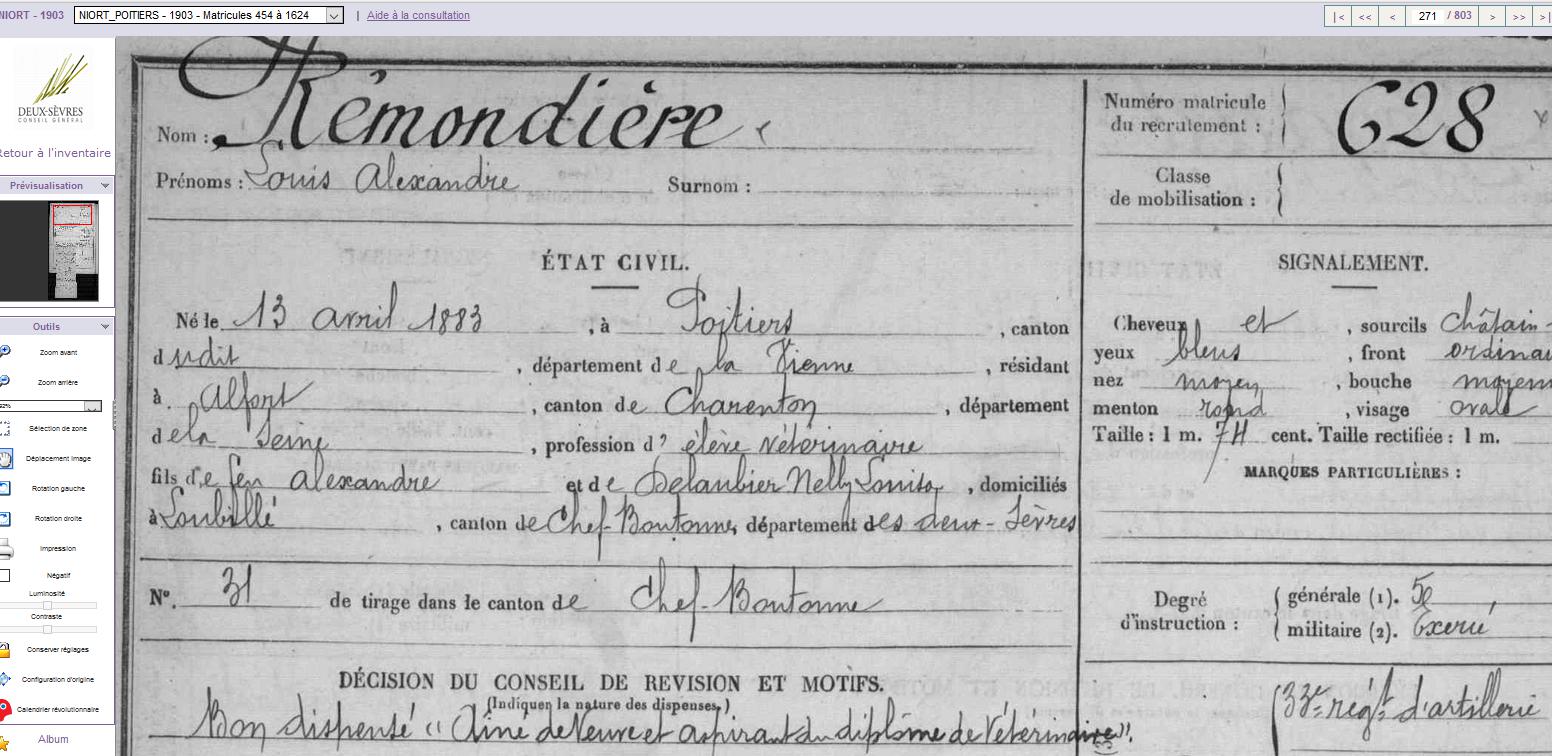 NIORT - 1903 NIORT_POITIERS - 1903 - Matricules 454 à 1624 | Aide à la consultation |< << < 271 / 803 > >> >|
DEUX-SÈVRES
CONSEIL GÉNÉRAL
Retour à l'inventaire
Prévisualisation
Outils
Zoom avant
Zoom arrière
Sélection de zone
Déplacement image
Rotation gauche
Rotation droite
Impression
Négatif
Luminosité
Contraste
Conserver réglages
Configuration d'origine
Calendrier révolutionnaire
Album
Nom : Rémondière
Prénoms : Louis Alexandre Surnom :
Numéro matricule
du recrutement : 628
Classe
de mobilisation :
ÉTAT CIVIL.
Né le 13 avril 1883 , à Poitiers , canton
dudit , département de la Vienne , résidant
à Alfort , canton de Charenton , département
de la Seine , profession d' élève Véterinaire
fils de feu Alexandre et de Delaubier Nelly Louise , domiciliés
à Loubillé , canton de Chef-Boutonne, département des deux-Sèvres
N°. 31 de tirage dans le canton de Chef-Boutonne
DÉCISION DU CONSEIL DE REVISION ET MOTIFS.
(Indiquer la nature des dispenses.)
Bon dispensé "Aîné de Veuve et aspirant du diplôme de Vétérinaire".
SIGNALEMENT.
Cheveux et , sourcils Châtain-
yeux bleus , front ordinai
nez moyen , bouche moyenn
menton rond , visage ovale
Taille : 1 m. 74 cent. Taille rectifiée : 1 m.
MARQUES PARTICULIÈRES :
Degré
d'instruction :
générale (1).
militaire (2). Exercé
33e régt d'artillerie